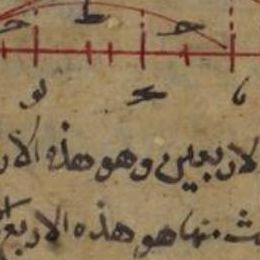 ح ط ح
الاربعين وهو هذه الار
ث منها هو هذه الاربع